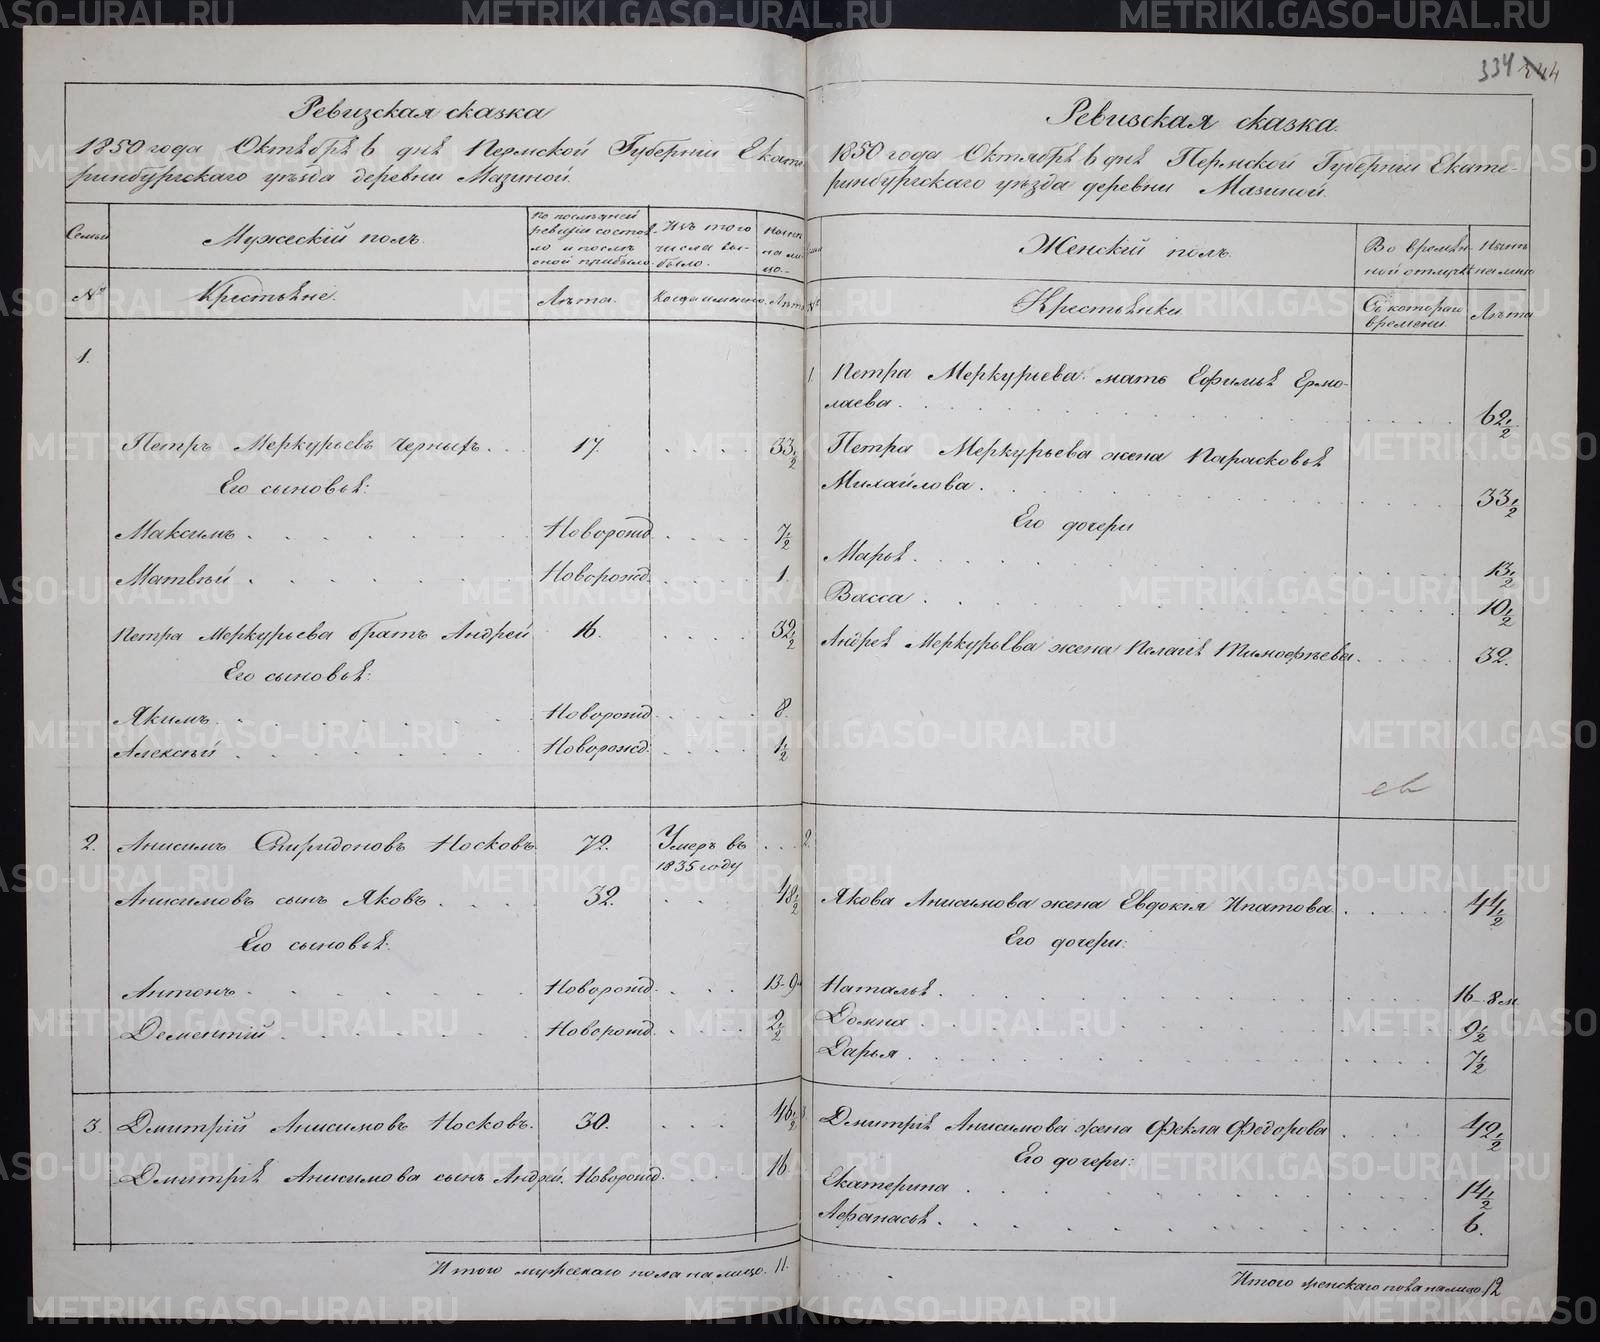 334 344
Ревизская сказка
1850 года Октѣбрѣ 6 днѣ Пермской Губерніи Екате-
ринбургскаго уѣзда деревни Мазиной.
Семьи
Мужескій полъ.
По послѣдней ревизіи состоѣло и послѣ оной прибыло.
Изъ того числа выбыло.
Нынѣ на лицо.
№
Крестьѣне.
Лѣта.
Когда именно.
Лѣта
1.
Петръ Меркурьевъ Черныхъ . . . 17. . . . . 33 1/2
Его сыновьѣ:
Максимъ . . . . . . . Новорожд. . . . . 7 1/2
Матвѣй . . . . . . . Новорожд. . . . . 1.
Петра Меркурьева братъ Андрей 16. . . . . 32 1/2
Его сыновьѣ:
Якимъ . . . . . . . Новорожд. . . . . 8.
Алексѣй . . . . . . . Новорожд. . . . . 1/2
2. Анисимъ Спиридоновъ Носковъ. 72. Умеръ въ 1835 году . . .
Анисимовъ сынъ Яковъ . . . . 32. . . 48 1/2
Его сыновьѣ:
Антонъ . . . . . . . Новорожд. . . . 13-9
Дементій . . . . . . . Новорожд. . . . 2 1/2
3. Дмитрій Анисимовъ Носковъ. 30. . . . 46 1/2
Дмитріѣ Анисимова сынъ Андрей. Новорожд. . . . 16.
Итого мужескаго пола на лицо. 11.
Ревизская сказка.
1850 года Октлбрѣ 6 днѣ Пермской Губерніи Екате-
ринбургскаго уѣзда деревни Мазиной.
Женскій полъ.
Во времѣнной отлучкѣ
Нынѣ на лицо
№
Крестьѣнки
Съ котораго времени.
Лѣта
1. Петра Меркурьева мать Ефимьѣ Ермо-
лаева . . . . . . . 62 1/2
Петра Меркурьева жена Парасковьѣ
Михайлова . . . . . . . 33 1/2
Его дочери
Марьѣ . . . . . . . 13 1/2
Васса . . . . . . . 10 1/2
Андреѣ Меркурьева жена Пелагіѣ Тимофѣева . . . . 32.
2.
Якова Анисимова жена Евдокія Ипатова . . . . . 44 1/2
Его дочери:
Натальѣ . . . . . . . 16-8 м.
Домна . . . . . . . 9 1/2
Дарья . . . . . . . 7 1/2
3. Дмитріѣ Анисимова жена Фекла Федорова . . . . 42 1/2
Его дочери:
Екатерина . . . . . . . 14 1/2
Афанасьѣ . . . . . . . 6.
Итого женскаго пола на лицо 12
METRIKI.GASO-URAL.RU